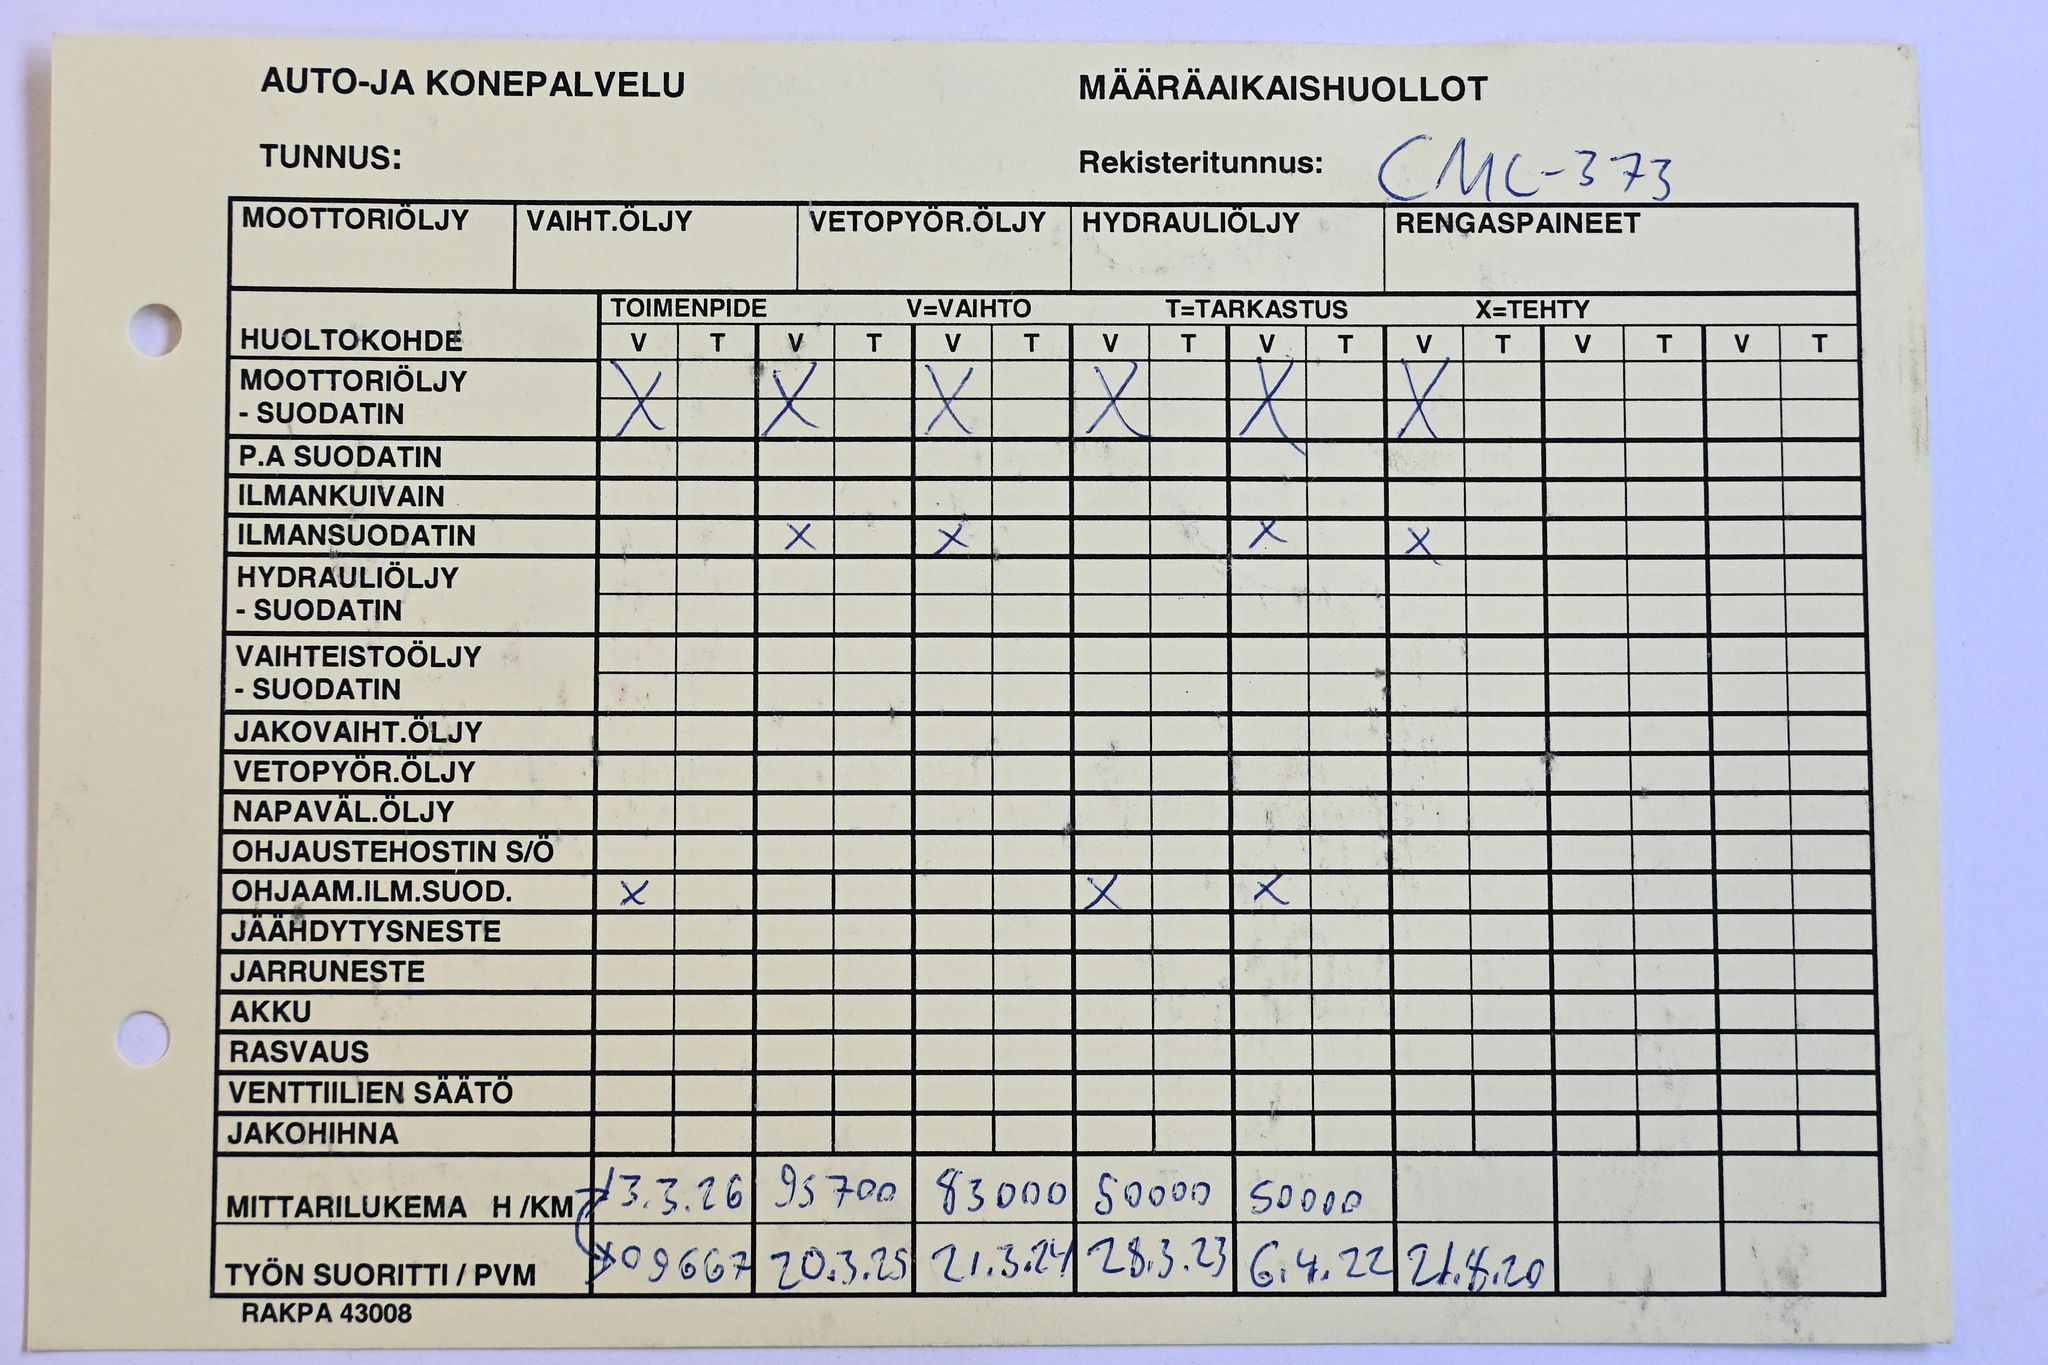 AUTO-JA KONEPALVELU MÄÄRÄAIKAISHUOLLOT
TUNNUS: Rekisteritunnus: CMC-373
MOOTTORIÖLJY VAIHT.ÖLJY VETOPYÖR.ÖLJY HYDRAULIÖLJY RENGASPAINEET
TOIMENPIDE V=VAIHTO T=TARKASTUS X=TEHTY
HUOLTOKOHDE V T V T V T V T V T V T V T V T
MOOTTORIÖLJY X X X X X X
- SUODATIN
P.A SUODATIN
ILMANKUIVAIN
ILMANSUODATIN X X X X
HYDRAULIÖLJY
- SUODATIN
VAIHTEISTOÖLJY
- SUODATIN
JAKOVAIHT.ÖLJY
VETOPYÖR.ÖLJY
NAPAVÄL.ÖLJY
OHJAUSTEHOSTIN S/Ö
OHJAAM.ILM.SUOD. X X X
JÄÄHDYTYSNESTE
JARRUNESTE
AKKU
RASVAUS
VENTTIILIEN SÄÄTÖ
JAKOHIHNA
MITTARILUKEMA H /KM 13.3.26 95700 83000 50000
TYÖN SUORITTI / PVM 109667 20.3.25 21.3.24 28.3.23 6.4.22 21.8.20
RAKPA 43008